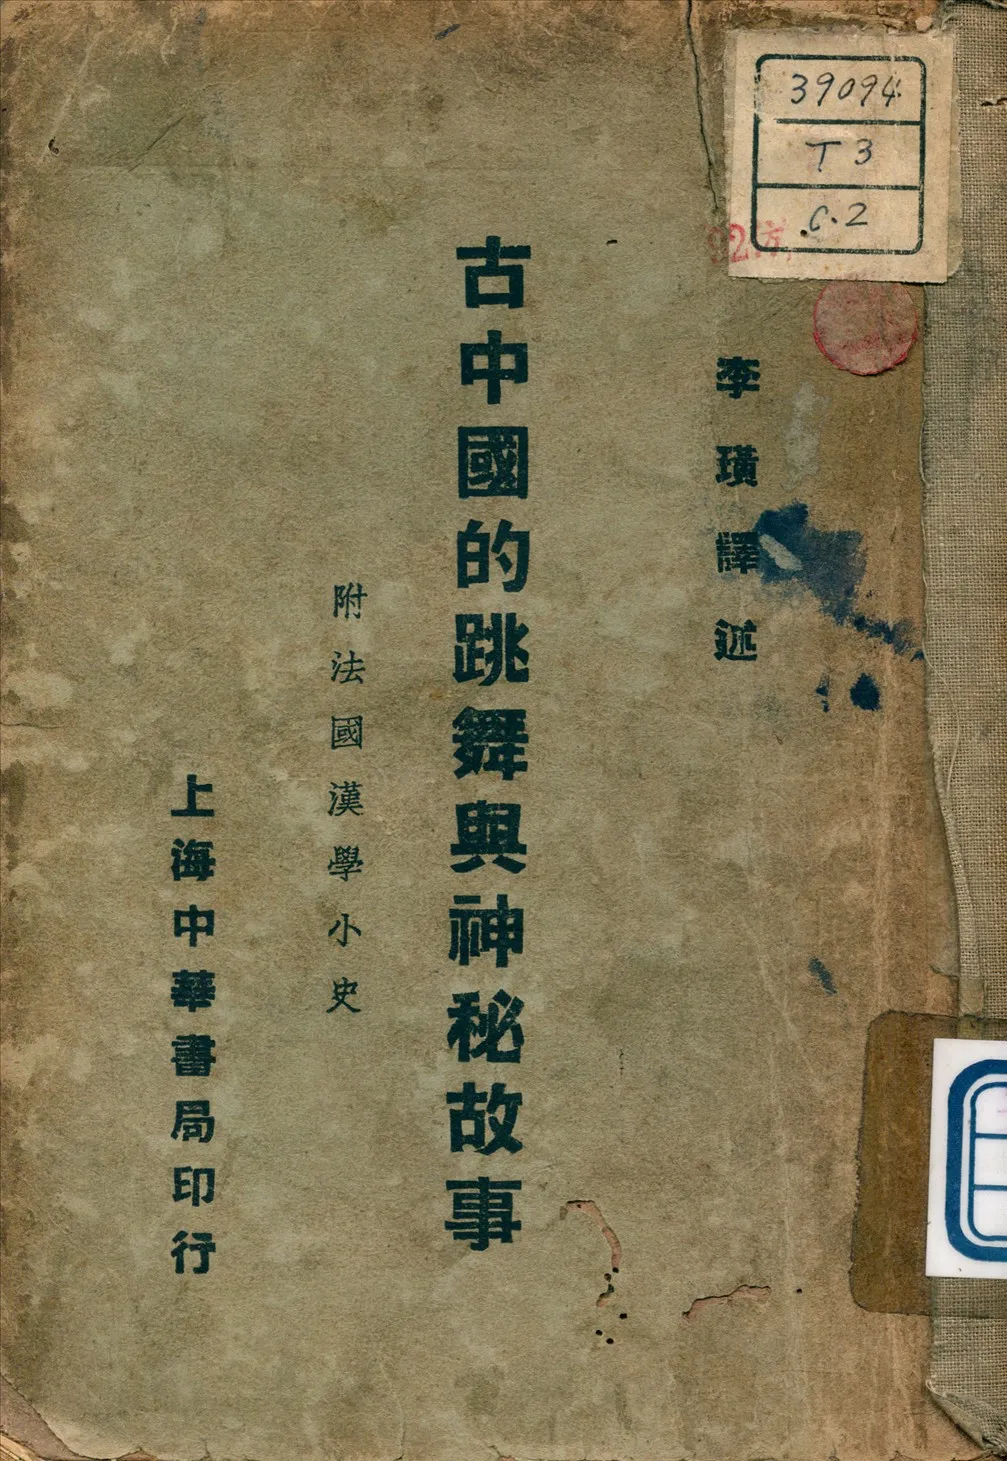 39094
T3
C.2
李璜譯述
古中國的跳舞與神秘故事
附法國漢學小史
上海中華書局印行